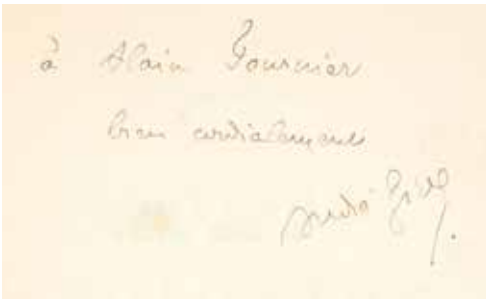 à Alain Fournier
bien cordialement
André Gide.